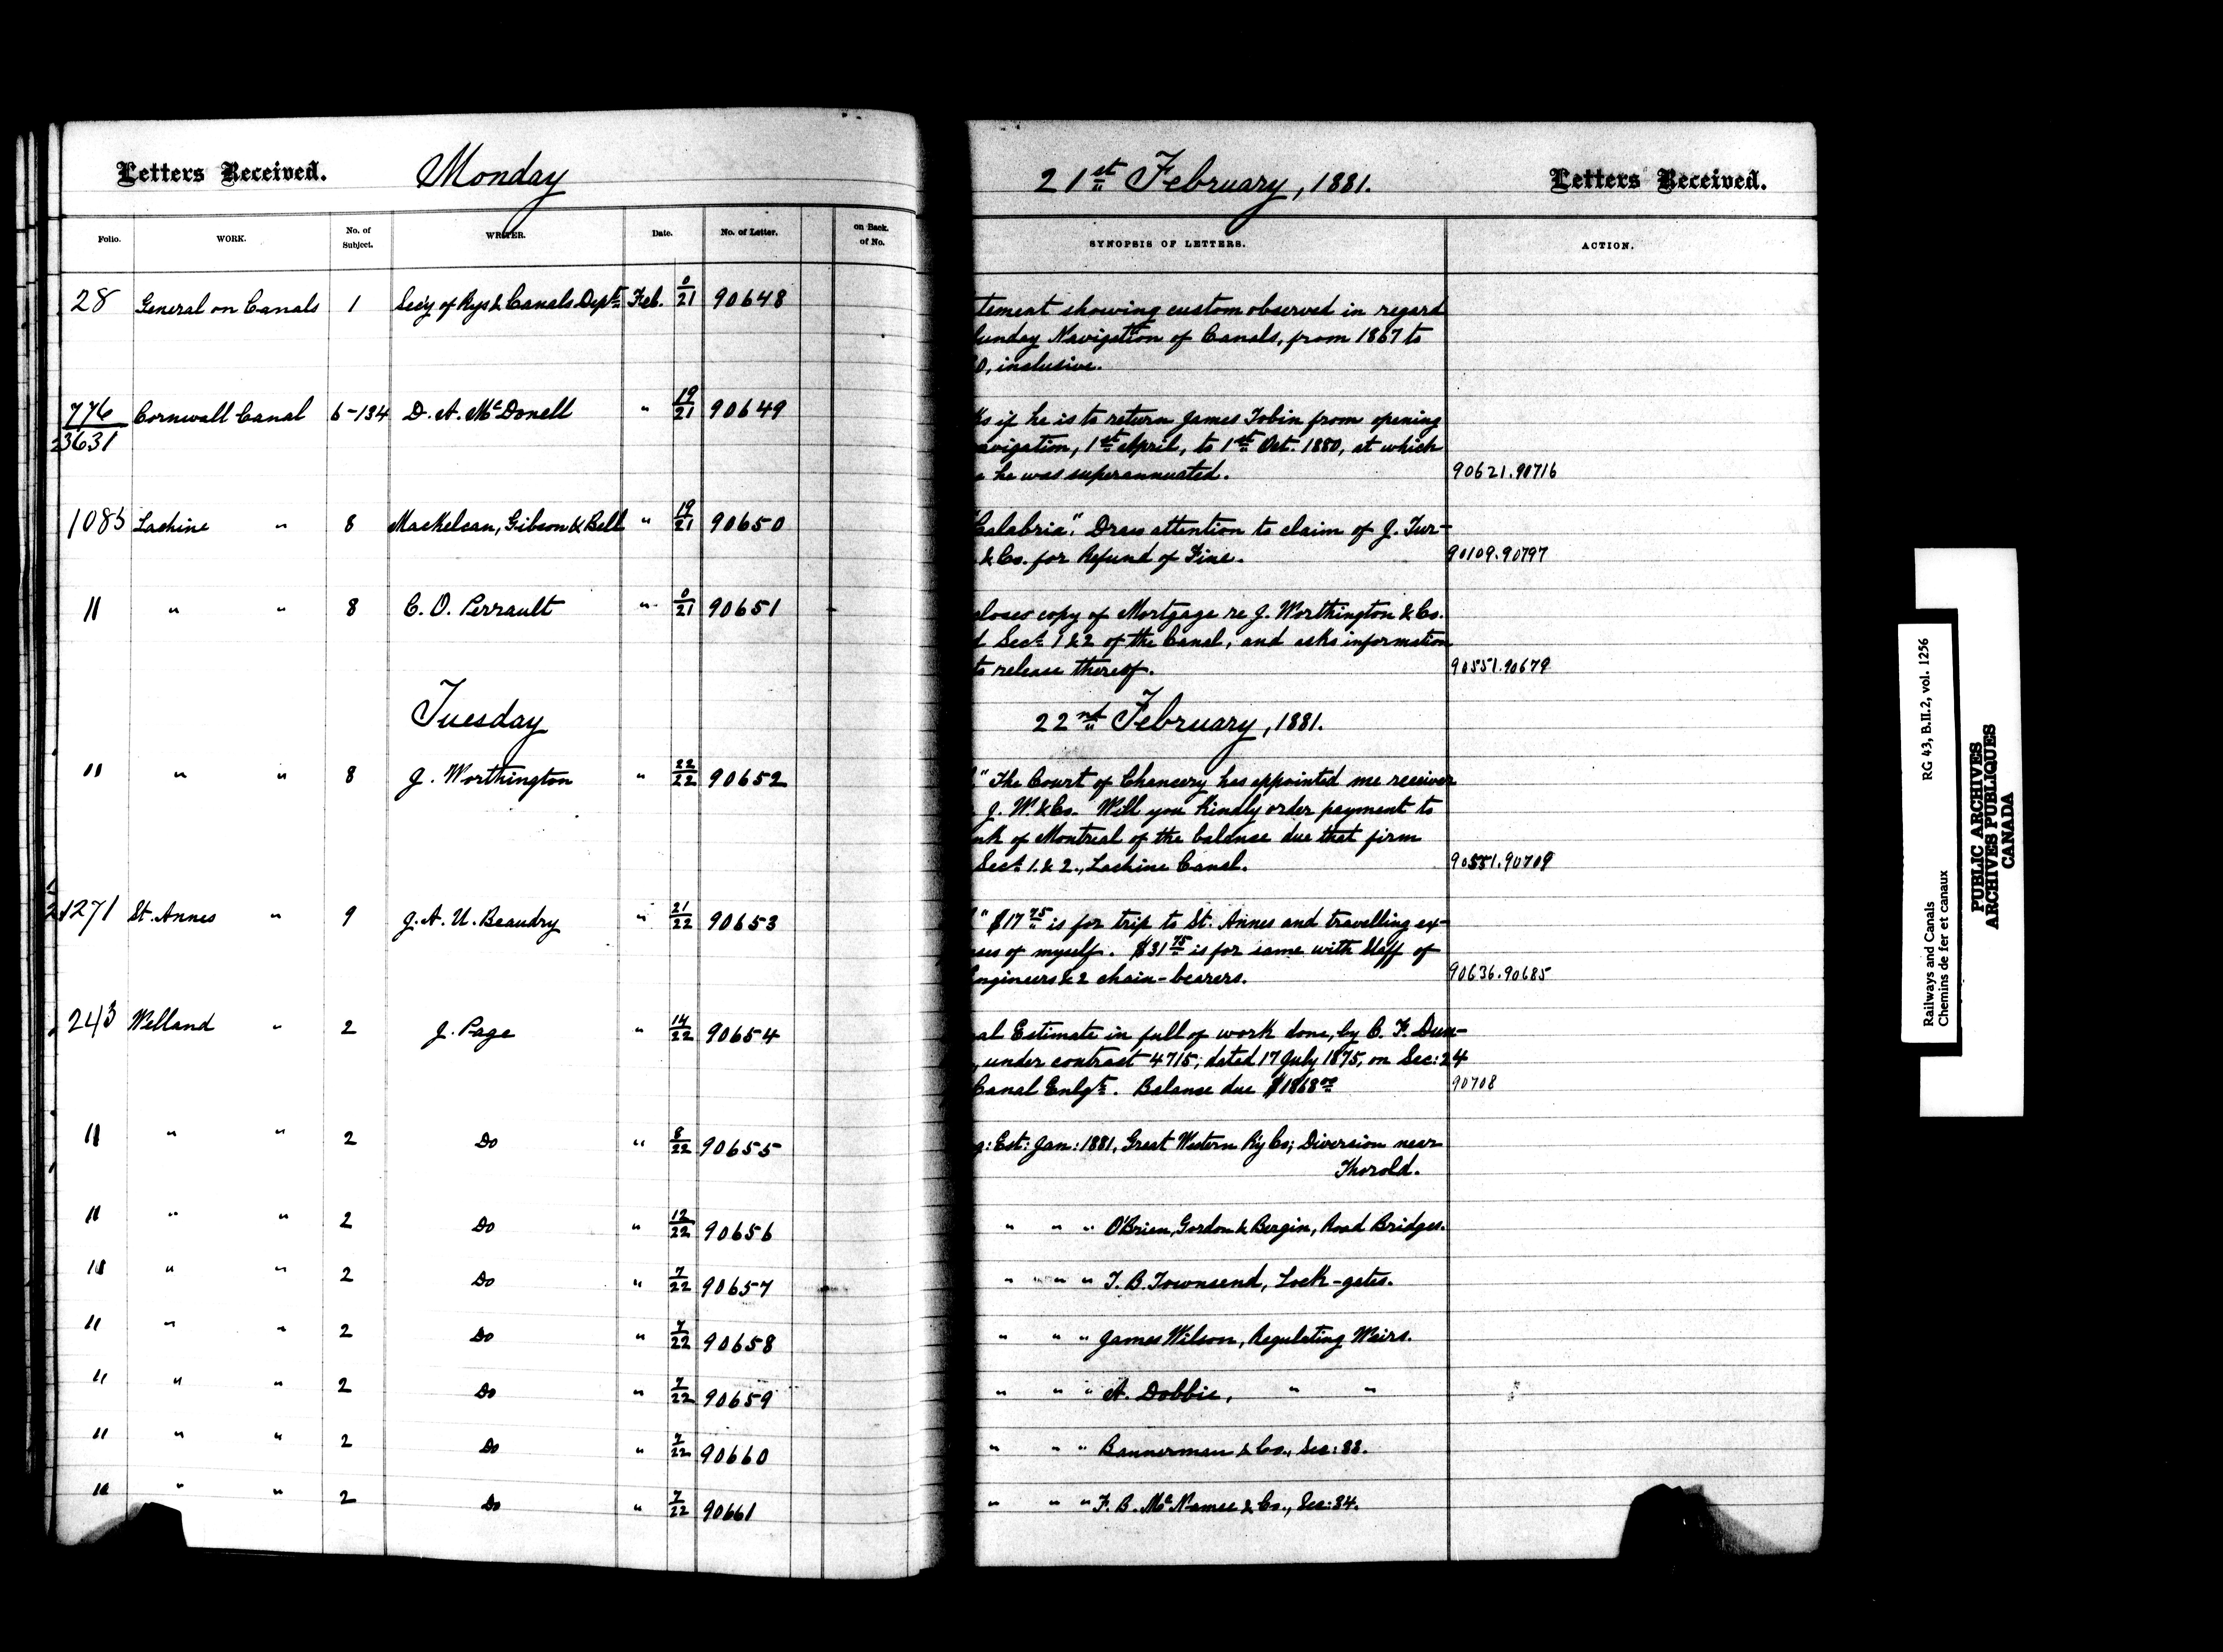 Letters Received. Monday 21st February, 1881. Letters Received.
Folio. WORK. No. of Subject. WRITER. Date. No. of Letter. on Back. of No. SYNOPSIS OF LETTERS. ACTION.
28 General on Canals 1 Secy of Rys & Canals Dept. Feb. 0/21 90648 tement showing custom observed in regard
unday Navigation of Canals, from 1867 to
0, inclusive.
776 Cornwall Canal 6-134 D. A. McDonell " 19/21 90649 ks if he is to return James Tobin from opening
3631 avigation, 1st April, to 1st Oct. 1880, at which
e he was superannuated. 90621.90716
1085 Lachine " 8 Mackelcan, Gibson & Bell " 19/21 90650 "Calabria". Draws attention to claim of J. Tur-
& Co. for Refund of Fine. 90109.90797
" " " 8 C. O. Perrault " 0/21 90651 closes copy of Mortgage re J. Worthington & Co.
d Sect. 1 & 2 of the Canal, and asks information
to release thereof. 90551.90679
Tuesday 22nd February, 1881.
" " " 8 J. Worthington " 22/22 90652 " The Court of Chancery has appointed me receiver
J. W. & Co. Will you kindly order payment to
nk of Montreal of the balance due that firm
Sect. 1 & 2., Lachine Canal. 90551.90709
1271 St. Annes " 9 J. A. U. Beaudry " 21/22 90653 " $17 75 is for trip to St. Annes and travelling ex-
ses of myself. $31 75 is for same with Staff of
ngineers & 2 chain-bearers. 90636.90685
243 Welland " 2 J. Page " 14/22 90654 al Estimate in full of work done, by C. F. Dun-
, under contract 4715; dated 17 July 1875, on Sec: 24
Canal Enlgt. Balance due $1868 00 90708
" " " 2 Do " 8/22 90655 g: Est: Jan: 1881, Great Western Ry Co; Diversion near
Thorold.
" " " 2 Do " 12/22 90656 " " " O'Brien, Gordon & Bergin, Road Bridges.
" " " 2 Do " 7/22 90657 " " " T. B. Townsend, Lock-gates.
" " " 2 Do " 7/22 90658 " " " James Wilson, Regulating Weirs.
" " " 2 Do " 7/22 90659 " " " A. Dobbie, " "
" " " 2 Do " 7/22 90660 " " " Bannerman & Co., Sec: 33.
" " " 2 Do " 7/22 90661 " " " F. B. McNamee & Co., Sec: 34.
Railways and Canals RG 43, B.II.2, vol. 1256
Chemins de fer et canaux
PUBLIC ARCHIVES
ARCHIVES PUBLIQUES
CANADA